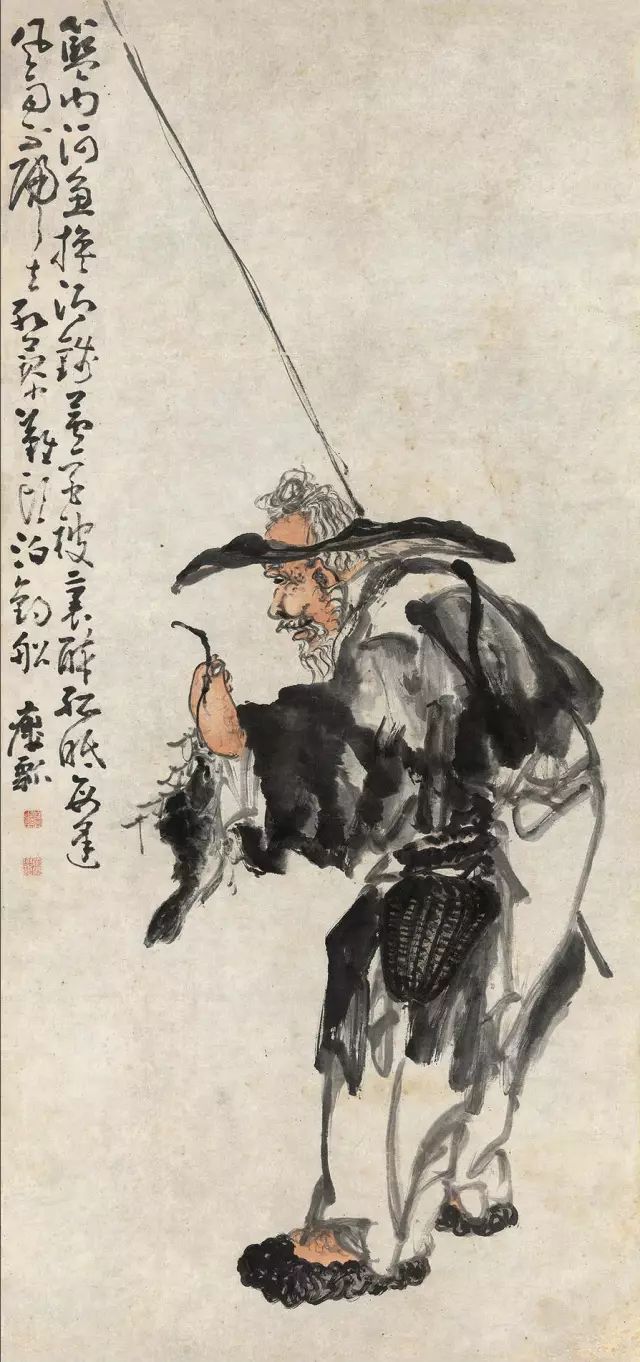 籃內河魚換酒錢蘆花被裏醉孤眠每逢
風雨不歸去紅蓼灘頭泊釣船 癭瓢